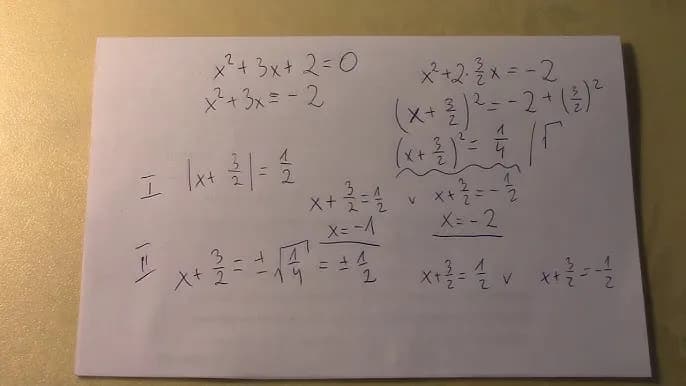 x² + 3x + 2 = 0
x² + 3x = -2
x² + 2·3/2x = -2
(x + 3/2)² = -2 + (3/2)²
(x + 3/2)² = 1/4 |√
I |x + 3/2| = 1/2
x + 3/2 = 1/2 v x + 3/2 = -1/2
x = -1 x = -2
II x + 3/2 = ±√1/4 = ±1/2 x + 3/2 = 1/2 v x + 3/2 = -1/2